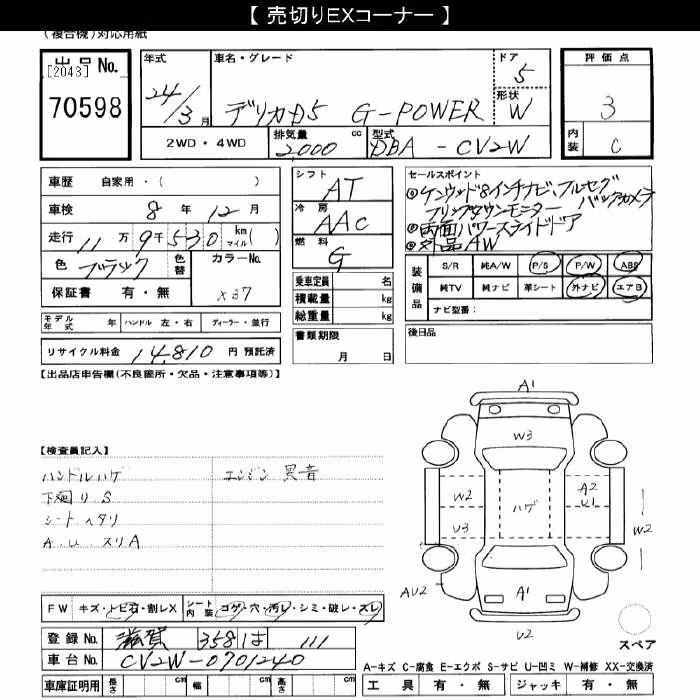 【 売切りEXコーナー 】
(複合機)対応用紙
出品No.
[2043]
70598
年式
24/3月
車名・グレード
デリカD5 G-POWER
ドア
5
形状
W
2WD・4WD
排気量
2,000 cc
型式
DBA - CV2W
評価点
3
内装
C
車歴 自家用・( )
車検 8年 12月
走行 11万9千530 km マイル( )
色 ブラック 色替
カラーNo.
X37
保証書 有・無
シフト
AT
冷房
AAC
燃料
G
乗車定員 名
積載量 kg
総重量 kg
書類期限
月 日
セールスポイント
◎ケンウッド8インチナビ、フルセグ
フリップダウンモニター バックカメラ
◎両面パワースライドドア
◎社外品AW
装備品
S/R 純A/W P/S P/W ABS
純TV 純ナビ 革シート 外ナビ エアB
ナビ型番:
モデル年式 年 ハンドル 左・右 ディーラー・並行
リサイクル料金 14,810 円 預託済
後日品
【出品店申告欄(不良箇所・欠品・注意事項等)】
【検査員記入】
ハンドルハゲ エンジン異音
下廻りS
シートヘタリ
A.U.スリA
A1
W3
W2
ハゲ
A2
U1
U3
W2
AU2
A1
U2
スペア
FW キズ・トビ石・割レX シート内装 コゲ・穴・汚レ・シミ・破レ・スレ
登録No. 滋賀 358 は 111
車台No. CV2W-0701240
車庫証明用 長さ cm 幅 cm 高さ cm
A-キズ C-腐食 E-エクボ S-サビ U-凹ミ W-補修 XX-交換済
工具 有・無 ジャッキ 有・無